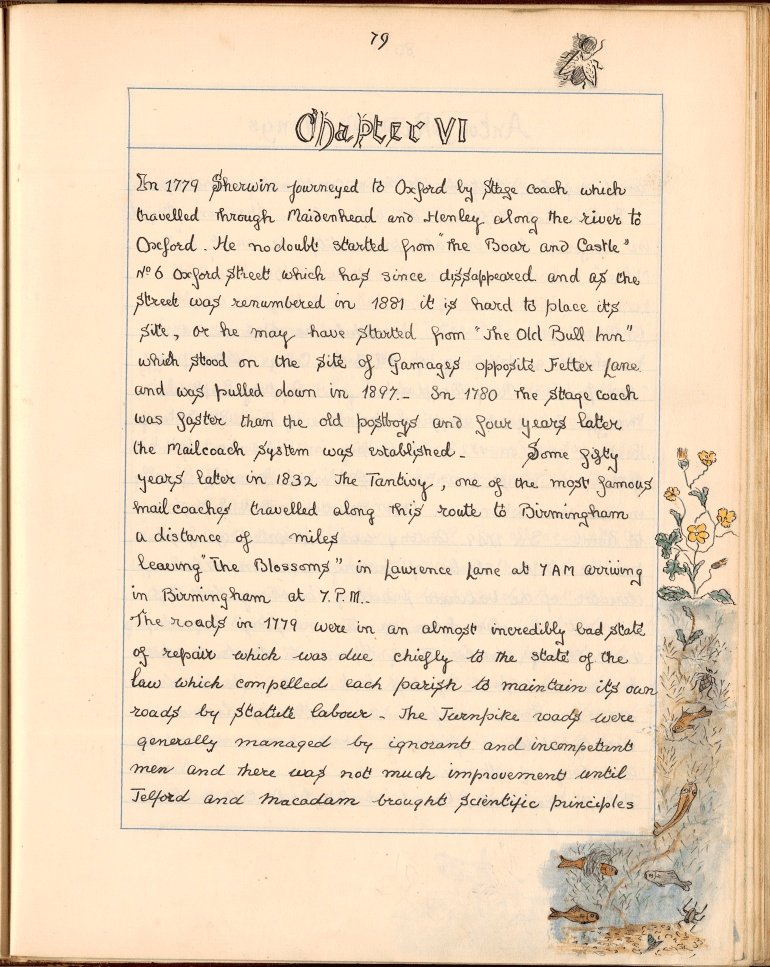 79
Chapter VI
In 1779 Sherwin journeyed to Oxford by Stage coach which
travelled through Maidenhead and Henley along the river to
Oxford. He no doubt started from "the Boar and Castle"
No 6 Oxford Street which has since dissappeared and as the
street was renumbered in 1881 it is hard to place its
site, or he may have started from "The Old Bull Inn"
which stood on the site of Gamages opposite Fetter Lane
and was pulled down in 1897.- In 1780 the stage coach
was faster than the old postboys and four years later
the Mailcoach system was established- Some fifty
years later in 1832 The Tantivy, one of the most famous
mail coaches travelled along this route to Birmingham
a distance of miles
leaving "The Blossoms" in Laurence Lane at 7 AM arriving
in Birmingham at 7.P.M..
The roads in 1779 were in an almost incredibly bad state
of repair which was due chiefly to the state of the
law which compelled each parish to maintain its own
roads by statute labour - The Turnpike roads were
generally managed by ignorant and incompetent
men and there was not much improvement until
Telford and Macadam brought scientific principles